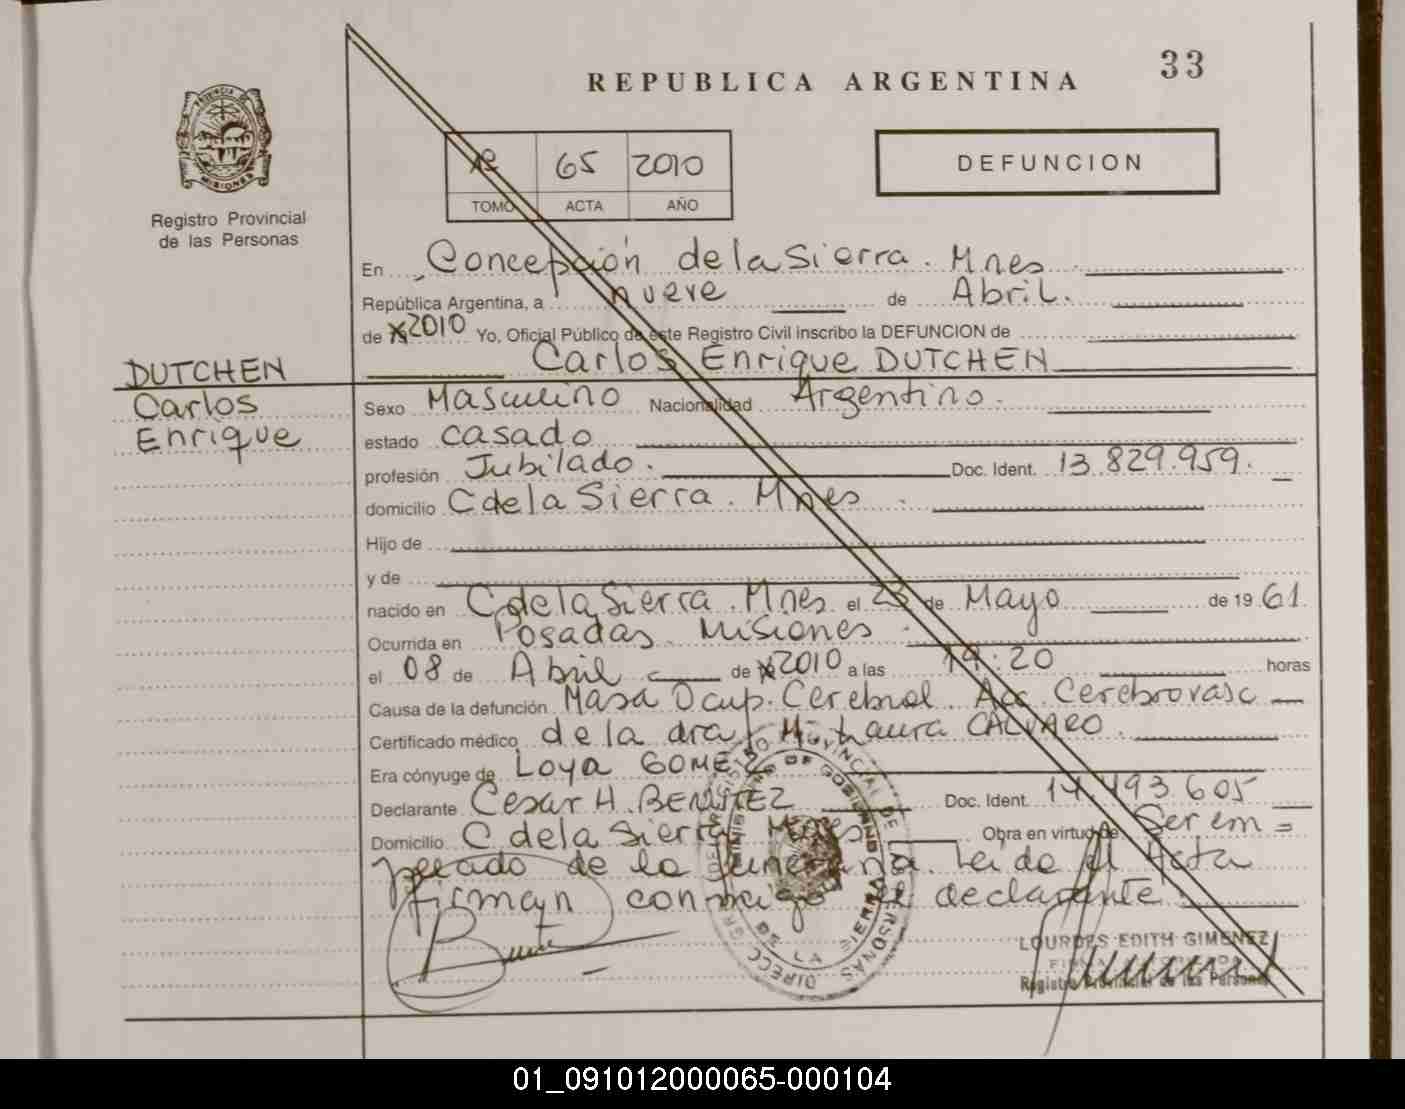 33
REPUBLICA ARGENTINA
PROVINCIA DE
MISIONES
Registro Provincial
de las Personas
65 2010
TOMO ACTA AÑO
DEFUNCION
En Concepción de la Sierra. Mnes
República Argentina, a nueve de Abril.
de 2010 Yo, Oficial Público de este Registro Civil inscribo la DEFUNCION de
Carlos Enrique DUTCHEN
DUTCHEN
Carlos
Enrique
Sexo Masculino Nacionalidad Argentino.
estado casado
profesión Jubilado. Doc. Ident. 13.829.959.
domicilio C de la Sierra. Mnes.
Hijo de
y de
nacido en C de la Sierra. Mnes el 23 de Mayo de 19 61
Ocurrida en Posadas. Misiones.
el 08 de Abril de 2010 a las :20 horas
Causa de la defunción Masa Ocup. Cerebral. Acc. Cerebrovasc
Certificado médico de la dra M. Laura CALVARO.
Era cónyuge de Loya GOMEZ
Declarante Cesar H. BENITEZ Doc. Ident. 14.493.605
Domicilio C de la Sierra Mnes Obra en virtud de Ser em=
pleado de la funeraria. Leída el Acta
firman conmigo el declarante.
LOURDES EDITH GIMENEZ
Registro Provincial de las Personas
01_091012000065-000104